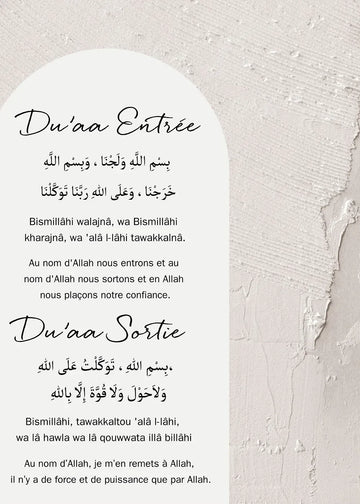 Du'aa Entrée
بِسْمِ اللَّهِ وَلَجْنَا ، وَبِسْمِ اللَّهِ
خَرَجْنَا ، وَعَلَى اللهِ رَبِّنَا تَوَكَّلْنَا
Bismillâhi walajnâ, wa Bismillâhi
kharajnâ, wa 'alâ l-lâhi tawakkalnâ.
Au nom d'Allah nous entrons et au
nom d'Allah nous sortons et en Allah
nous plaçons notre confiance.
Du'aa Sortie
بِسْمِ اللهِ ، تَوَكَّلْتُ عَلَى اللهِ،
وَلاَحَوْلَ وَلَا قُوَّةَ إِلَّا بِاللهِ
Bismillâhi, tawakkaltou 'alâ l-lâhi,
wa lâ hawla wa lâ qouwwata illâ billâhi
Au nom d'Allah, je m'en remets à Allah,
il n'y a de force et de puissance que par Allah.